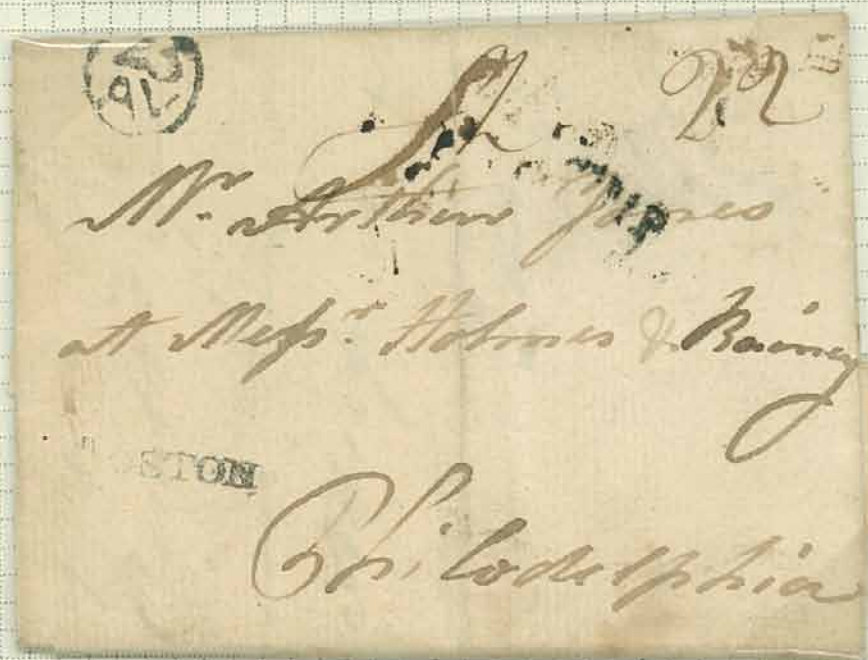 Sh 22
Mr. Arthur Jones
at Messrs. Holmes & Rainey
BOSTON
Philadelphia